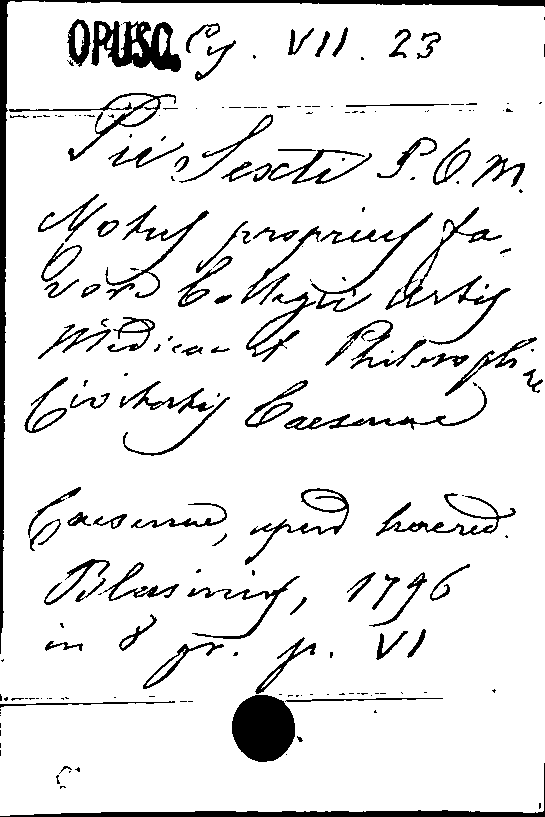 OPUSC. Cy. VII. 23
Pii Sexti P. O. M.
Motus proprius fa-
vore Collegii Artis
Medicae et Philosophiae
Civitatis Caesenae
Caesenae, apud haered.
Blasinios, 1796
in 8 gr. p. VI